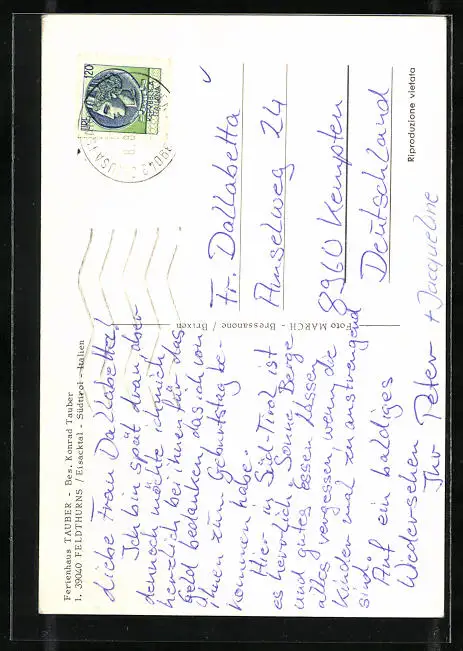 Ferienhaus TAUBER - Bes. Konrad Tauber
I. 39040 FELDTHURNS / Eisacktal - Südtirol - Italien
Liebe Frau Dallabetta!
Ich bin spät dran aber
dennoch möchte ich mich
herzlich bei Ihnen für das
Geld bedanken, das ich von
Ihnen zum Geburtstag be-
kommen habe.
Hier in Süd-Tirol ist
es herrlich. Sonne Berge
und gutes Essen lassen
alles vergessen, wenn die
Kinder mal zu anstrengend
sind.
Auf ein baldiges
Wiedersehen
Ihr Peter + Jacqueline
Foto MARCH - Bressanone / Brixen
LIRE 120
REPVBBLICA
ITALIANA
39042
Fr. Dallabetta
Amselweg 24
8960 Kempten
Deutschland
Riproduzione vietata